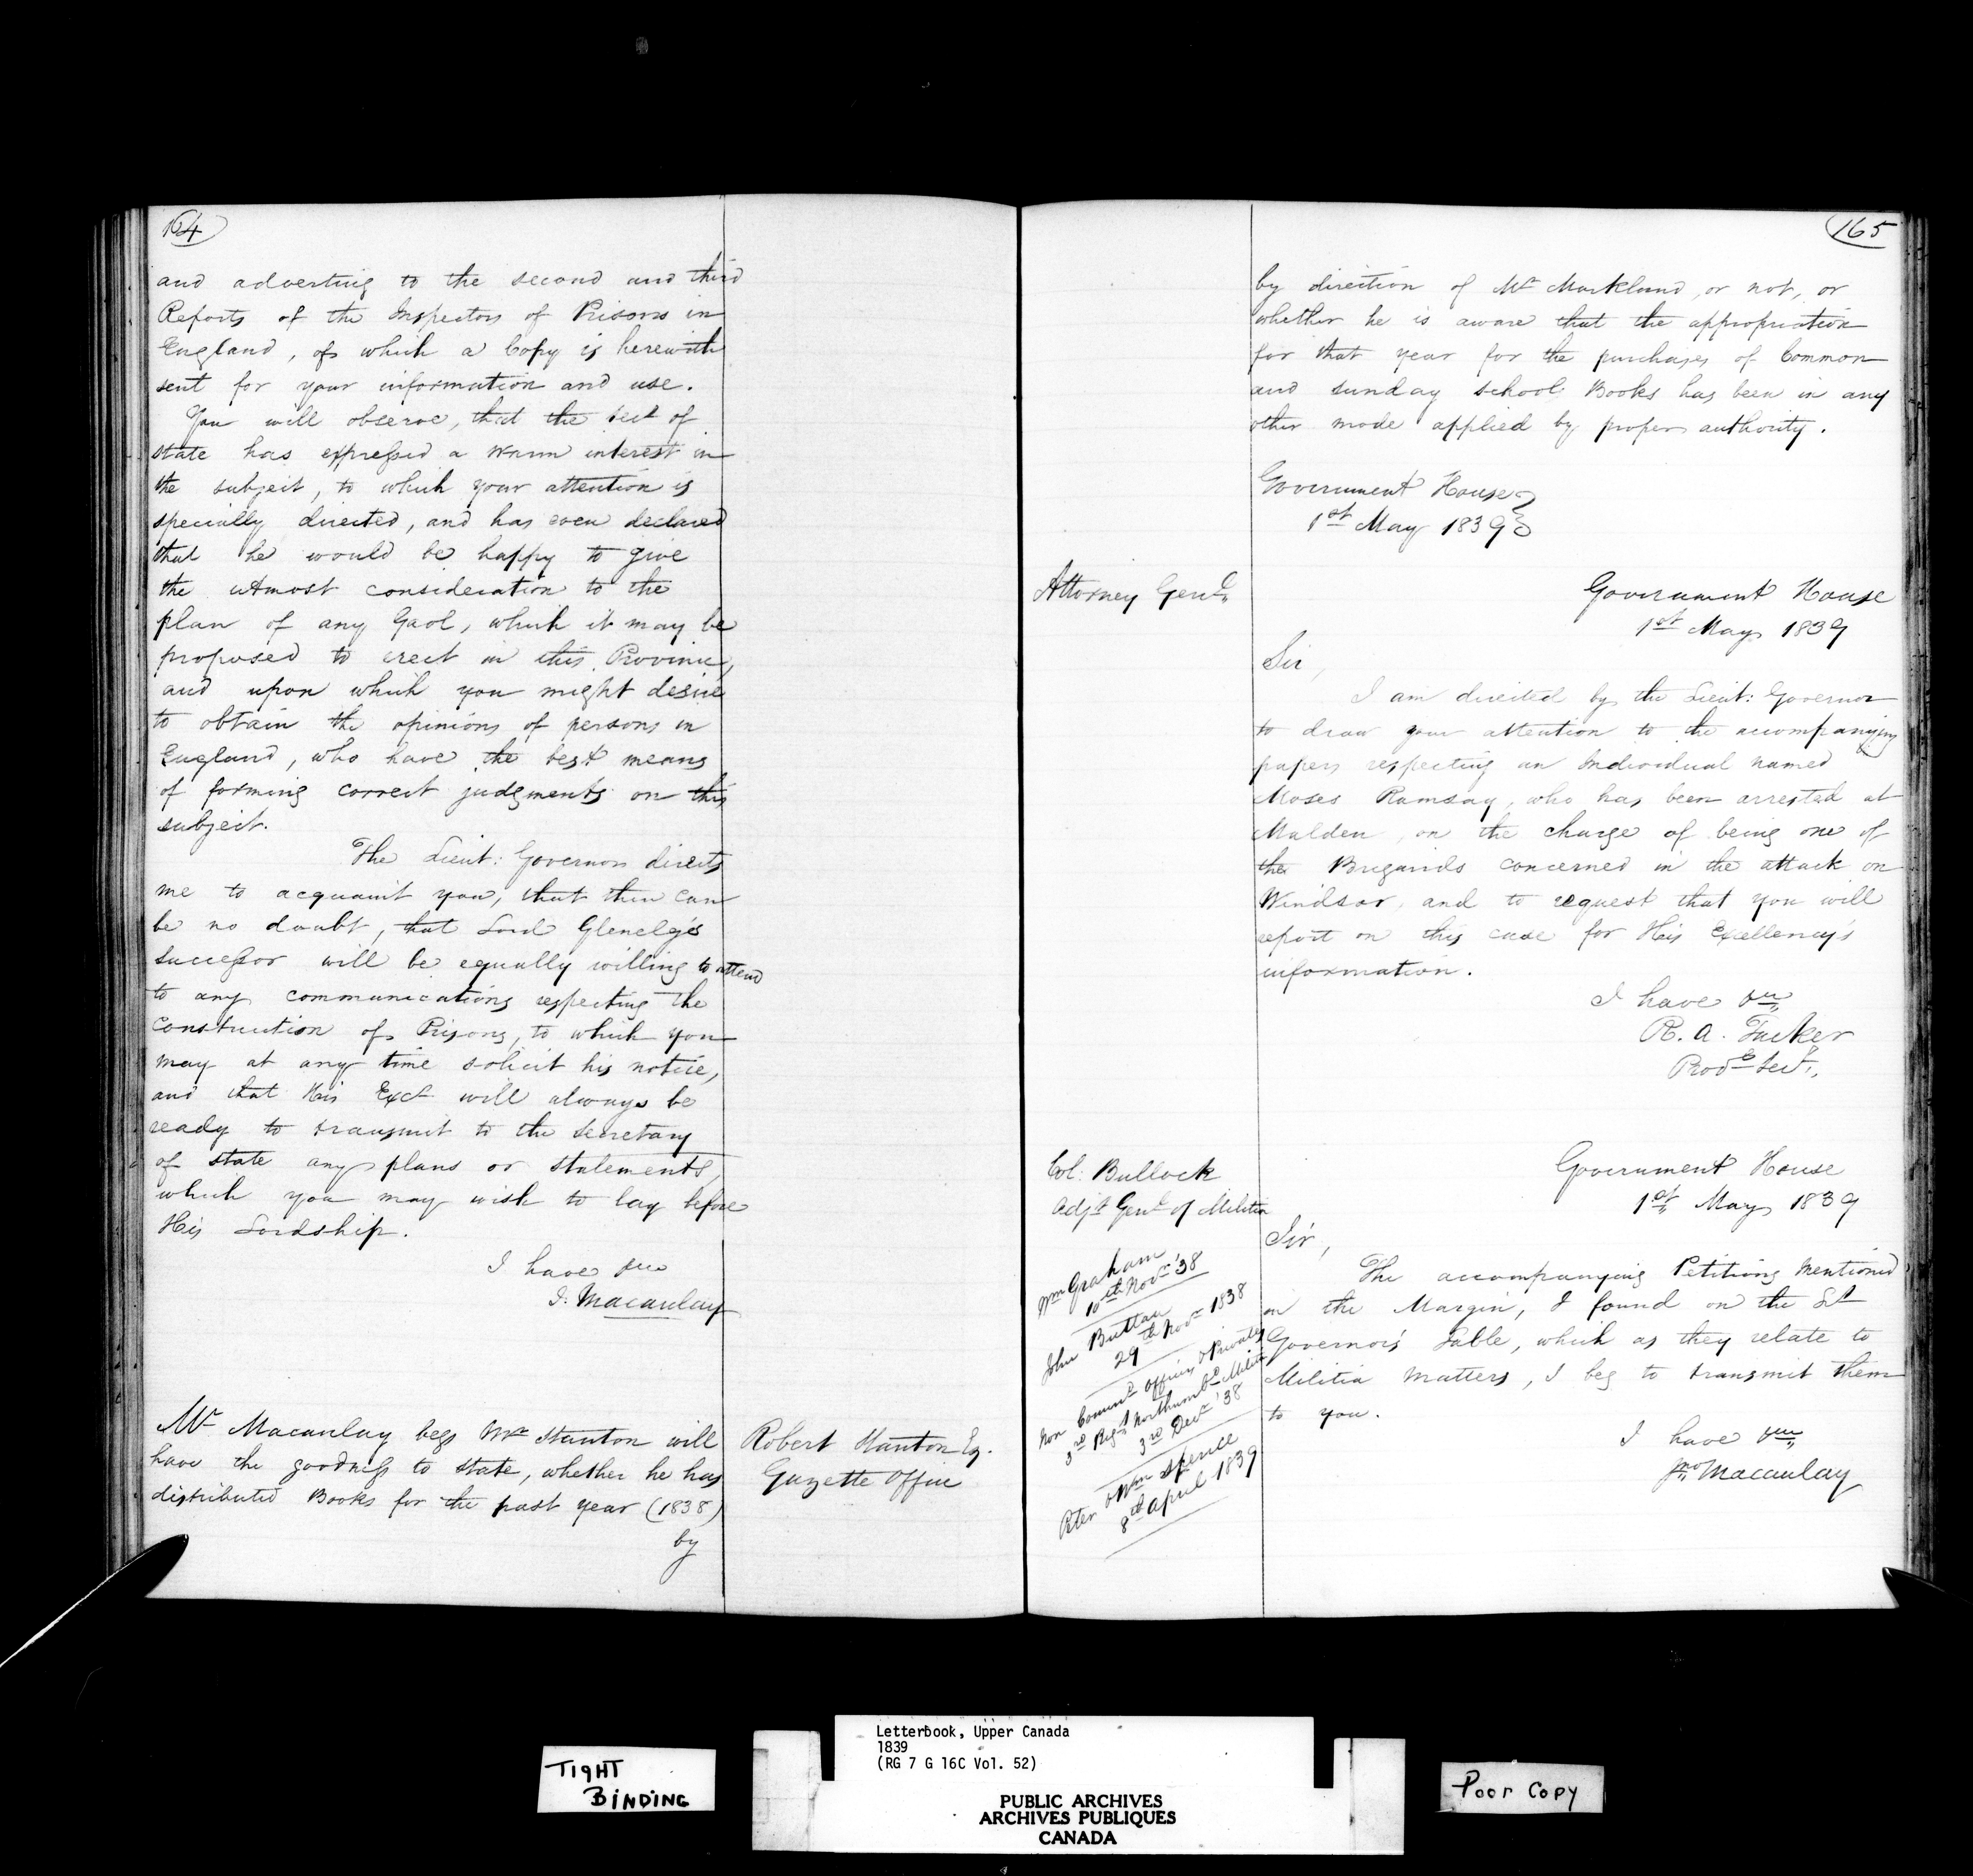 164
and adverting to the second and third
Reports of the Inspectors of Prisons in
England, of which a Copy is herewith
sent for your information and use.
You will observe, that the Sect of
state has expressed a warm interest in
the subject, to which your attention is
specially directed, and has even declared
that he would be happy to give
the utmost consideration to the
plan of any Gaol, which it may be
proposed to erect in this Province,
and upon which you might desire
to obtain the opinions of persons in
England, who have the best means
of forming correct judgments on this
subject.
The Lieut: Governor directs
me to acquaint you, that there can
be no doubt, that Lord Glenelg's
successor will be equally willing to attend
to any communications respecting the
Construction of Prisons, to which you
may at any time solicit his notice,
and that His Excy will always be
ready to transmit to the Secretary
of state any plans or statements,
which you may wish to lay before
His Lordship.
I have &c
J. Macaulay
Mr Macaulay begs Mr Stanton will
have the goodness to state, whether he has
distributed Books for the past year (1838)
by
Robert Stanton Esq.
Gazette Office
165
by direction of Mr Markland, or not, or
whether he is aware that the appropriation
for that year for the purchases of Common
and sunday school Books has been in any
other mode applied by proper authority.
Government House
1st May 1839
Attorney Genl
Government House
1st May 1839
Sir,
I am directed by the Lieut: Governor
to draw your attention to the accompanying
papers respecting an Individual named
Moses Ramsay, who has been arrested at
Malden, on the charge of being one of
the Brigands concerned in the attack on
Windsor, and to request that you will
report on this case for His Excellency's
information.
I have &c
R. A. Tucker
Prov. Sect.
Col: Bullock
Adjt Genl of Militia
Government House
1st May 1839
Sir,
The accompanying Petitions mentioned
in the Margin, I found on the Lt
Governor's Table, which as they relate to
Militia Matters, I beg to transmit them
to you.
I have &c
Jno Macaulay
Wm Graham
10th Novr '38
John Buttan
29th Novr 1838
Non Commd Officers & Privates
3rd Regt Northumbd Militia
3rd Decr '38
Peter & Wm Spence
8th April 1839
TIGHT
BINDING
Letterbook, Upper Canada
1839
(RG 7 G 16C Vol. 52)
PUBLIC ARCHIVES
ARCHIVES PUBLIQUES
CANADA
Poor Copy